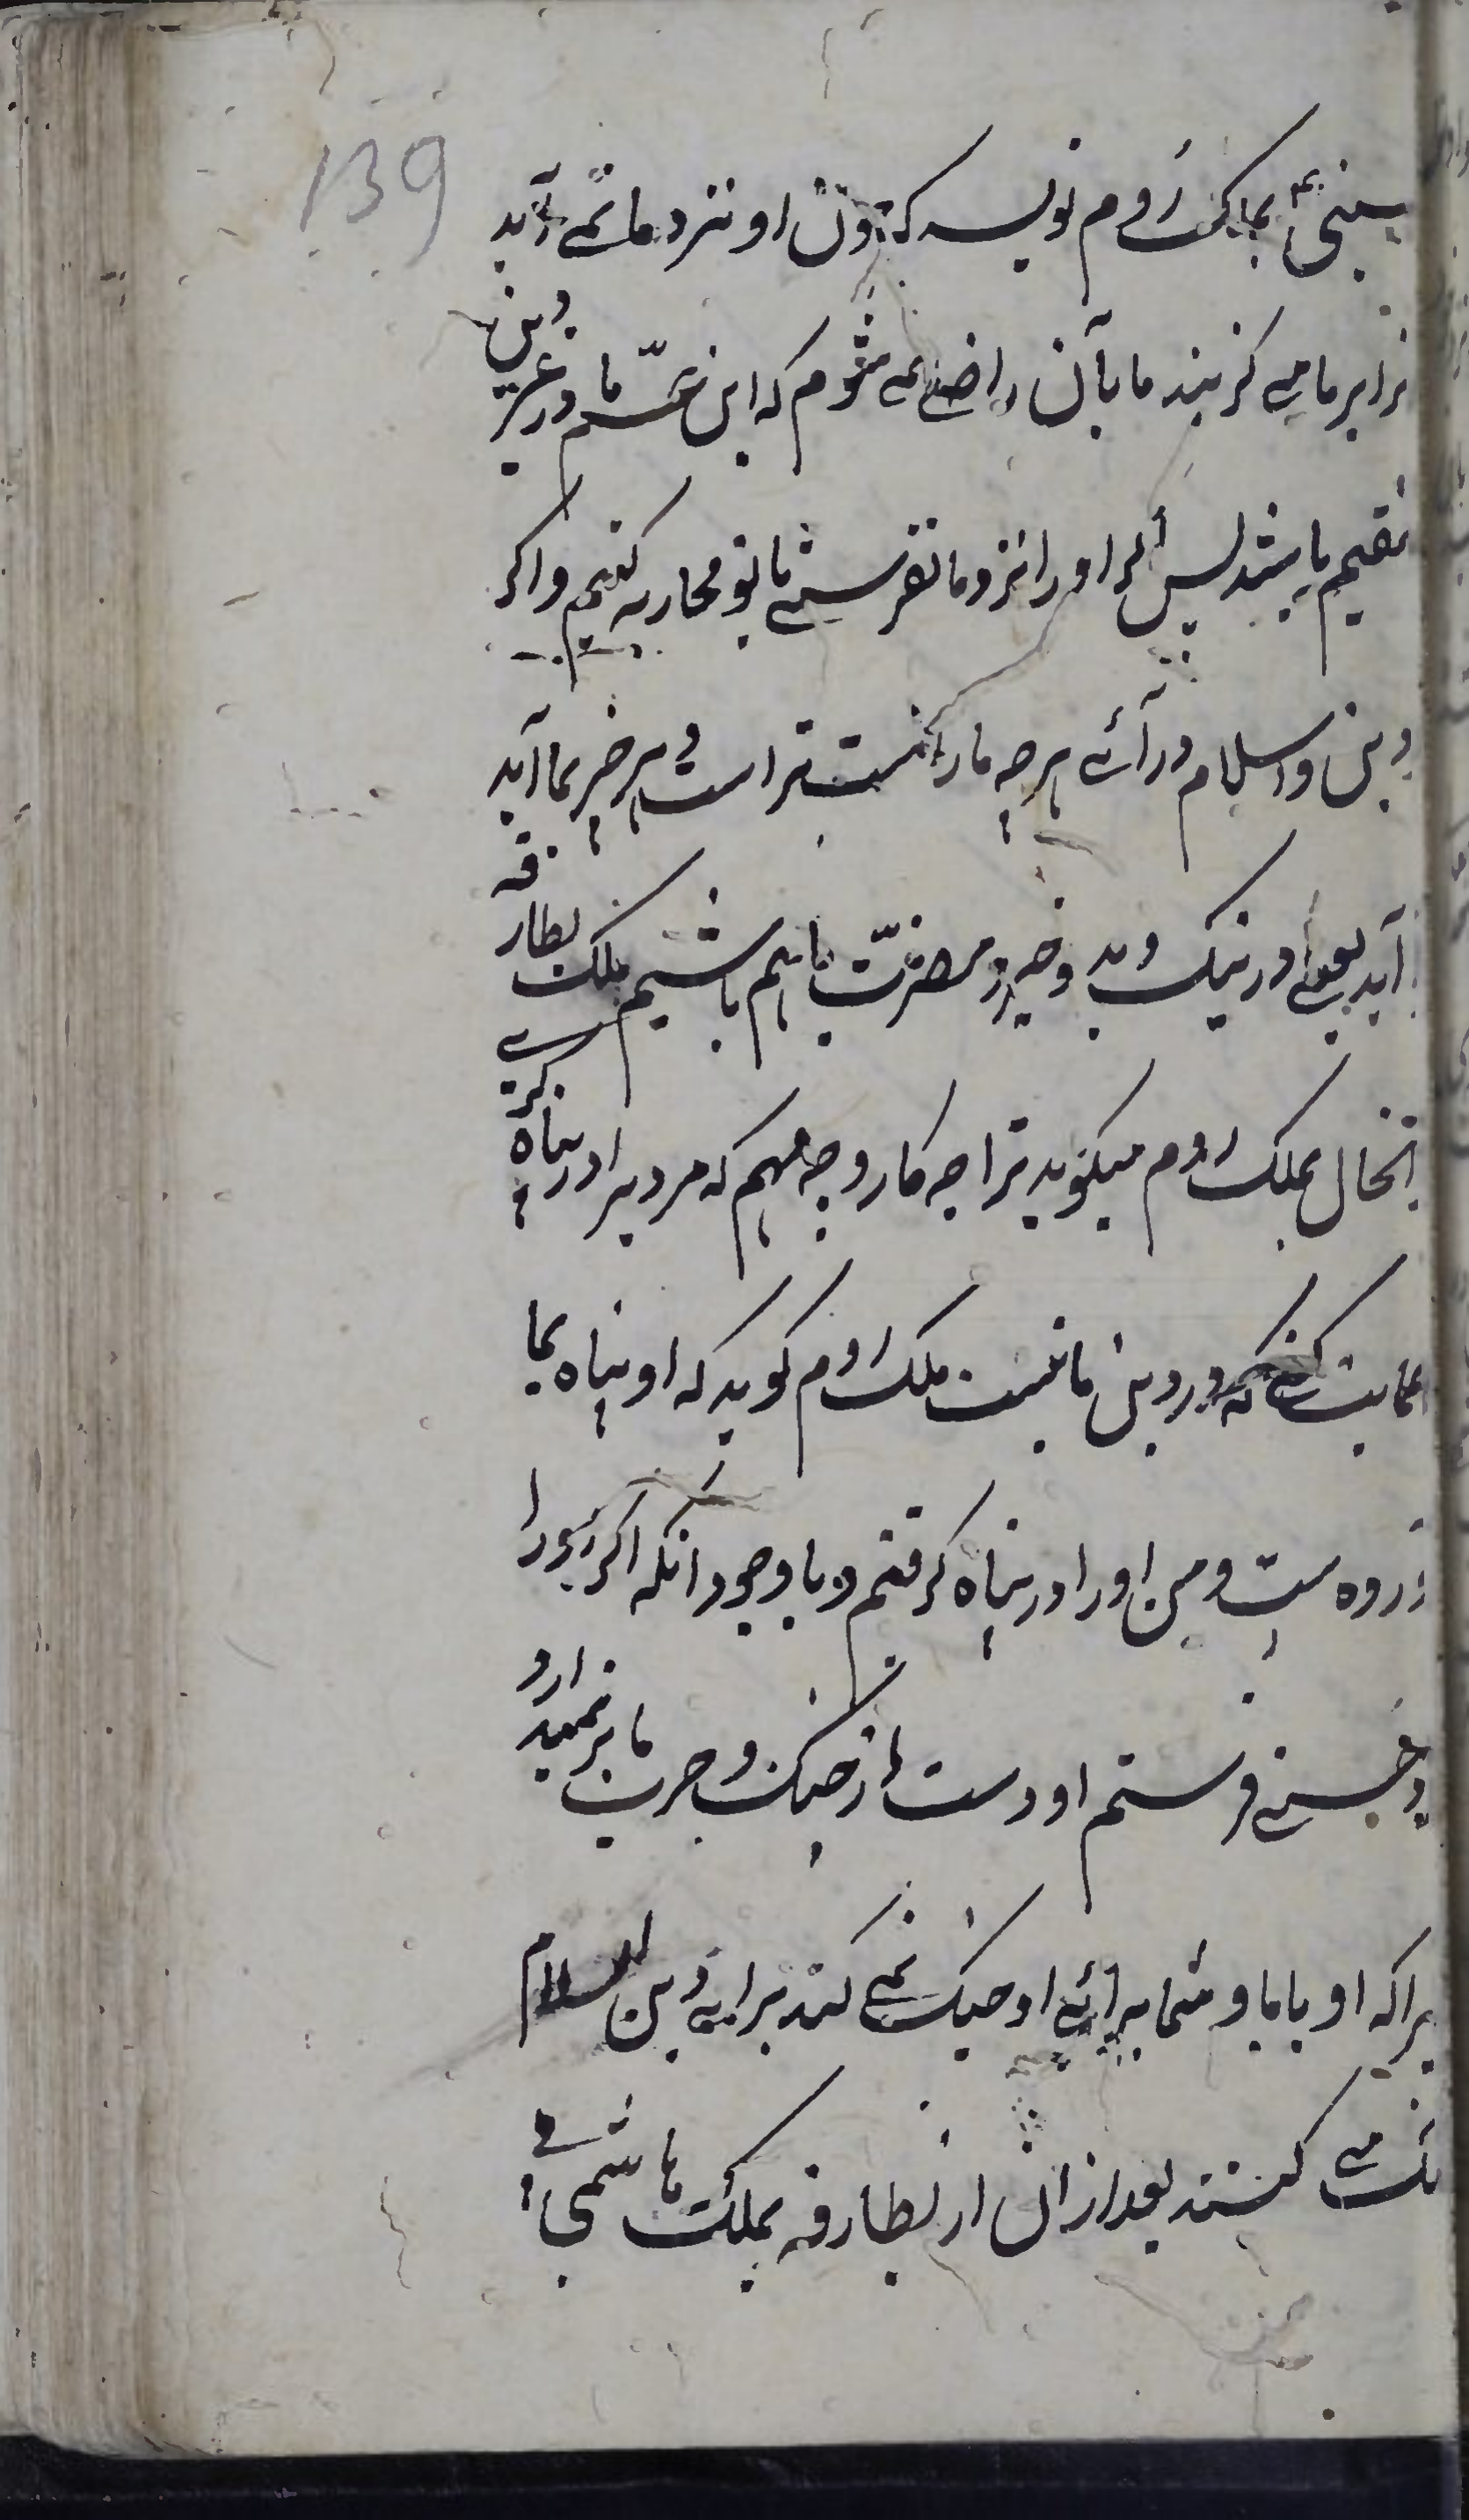 139
بملک روم نویسد که چون او نزد ما نمے آید
برابر ما مے گزیند ما بآن راضے نمے شوم که ابن عم ما در غیر دین
مقیم باشد پس اگر او را نزد ما نفرستے با تو محاربه کنیم و اگر
دین و اسلام در آئے هر چه ما راست تراست و هر خیر بما آید
آید یعنے در نیک و بد و خیر و مضرت باهم باشیم ملک بطارقه
انحال بملک روم میگوید ترا چه کار و چه مهم که مردیرا در پناه گیرے
حمایت کنے که در دین ما نیست ملک روم گوید که او پناه بما
آورده است و من او را در پناه گرفتم و با وجود آنکه اگر او را
فرستم او دست از جنگ و حرب ما بر نمیدارد
چرا که او با ما و شما برائے او جنگ نمے کند برایه دین اسلام
جنگ مے کنند بعد از ان از بطارقه بملک هاشمی